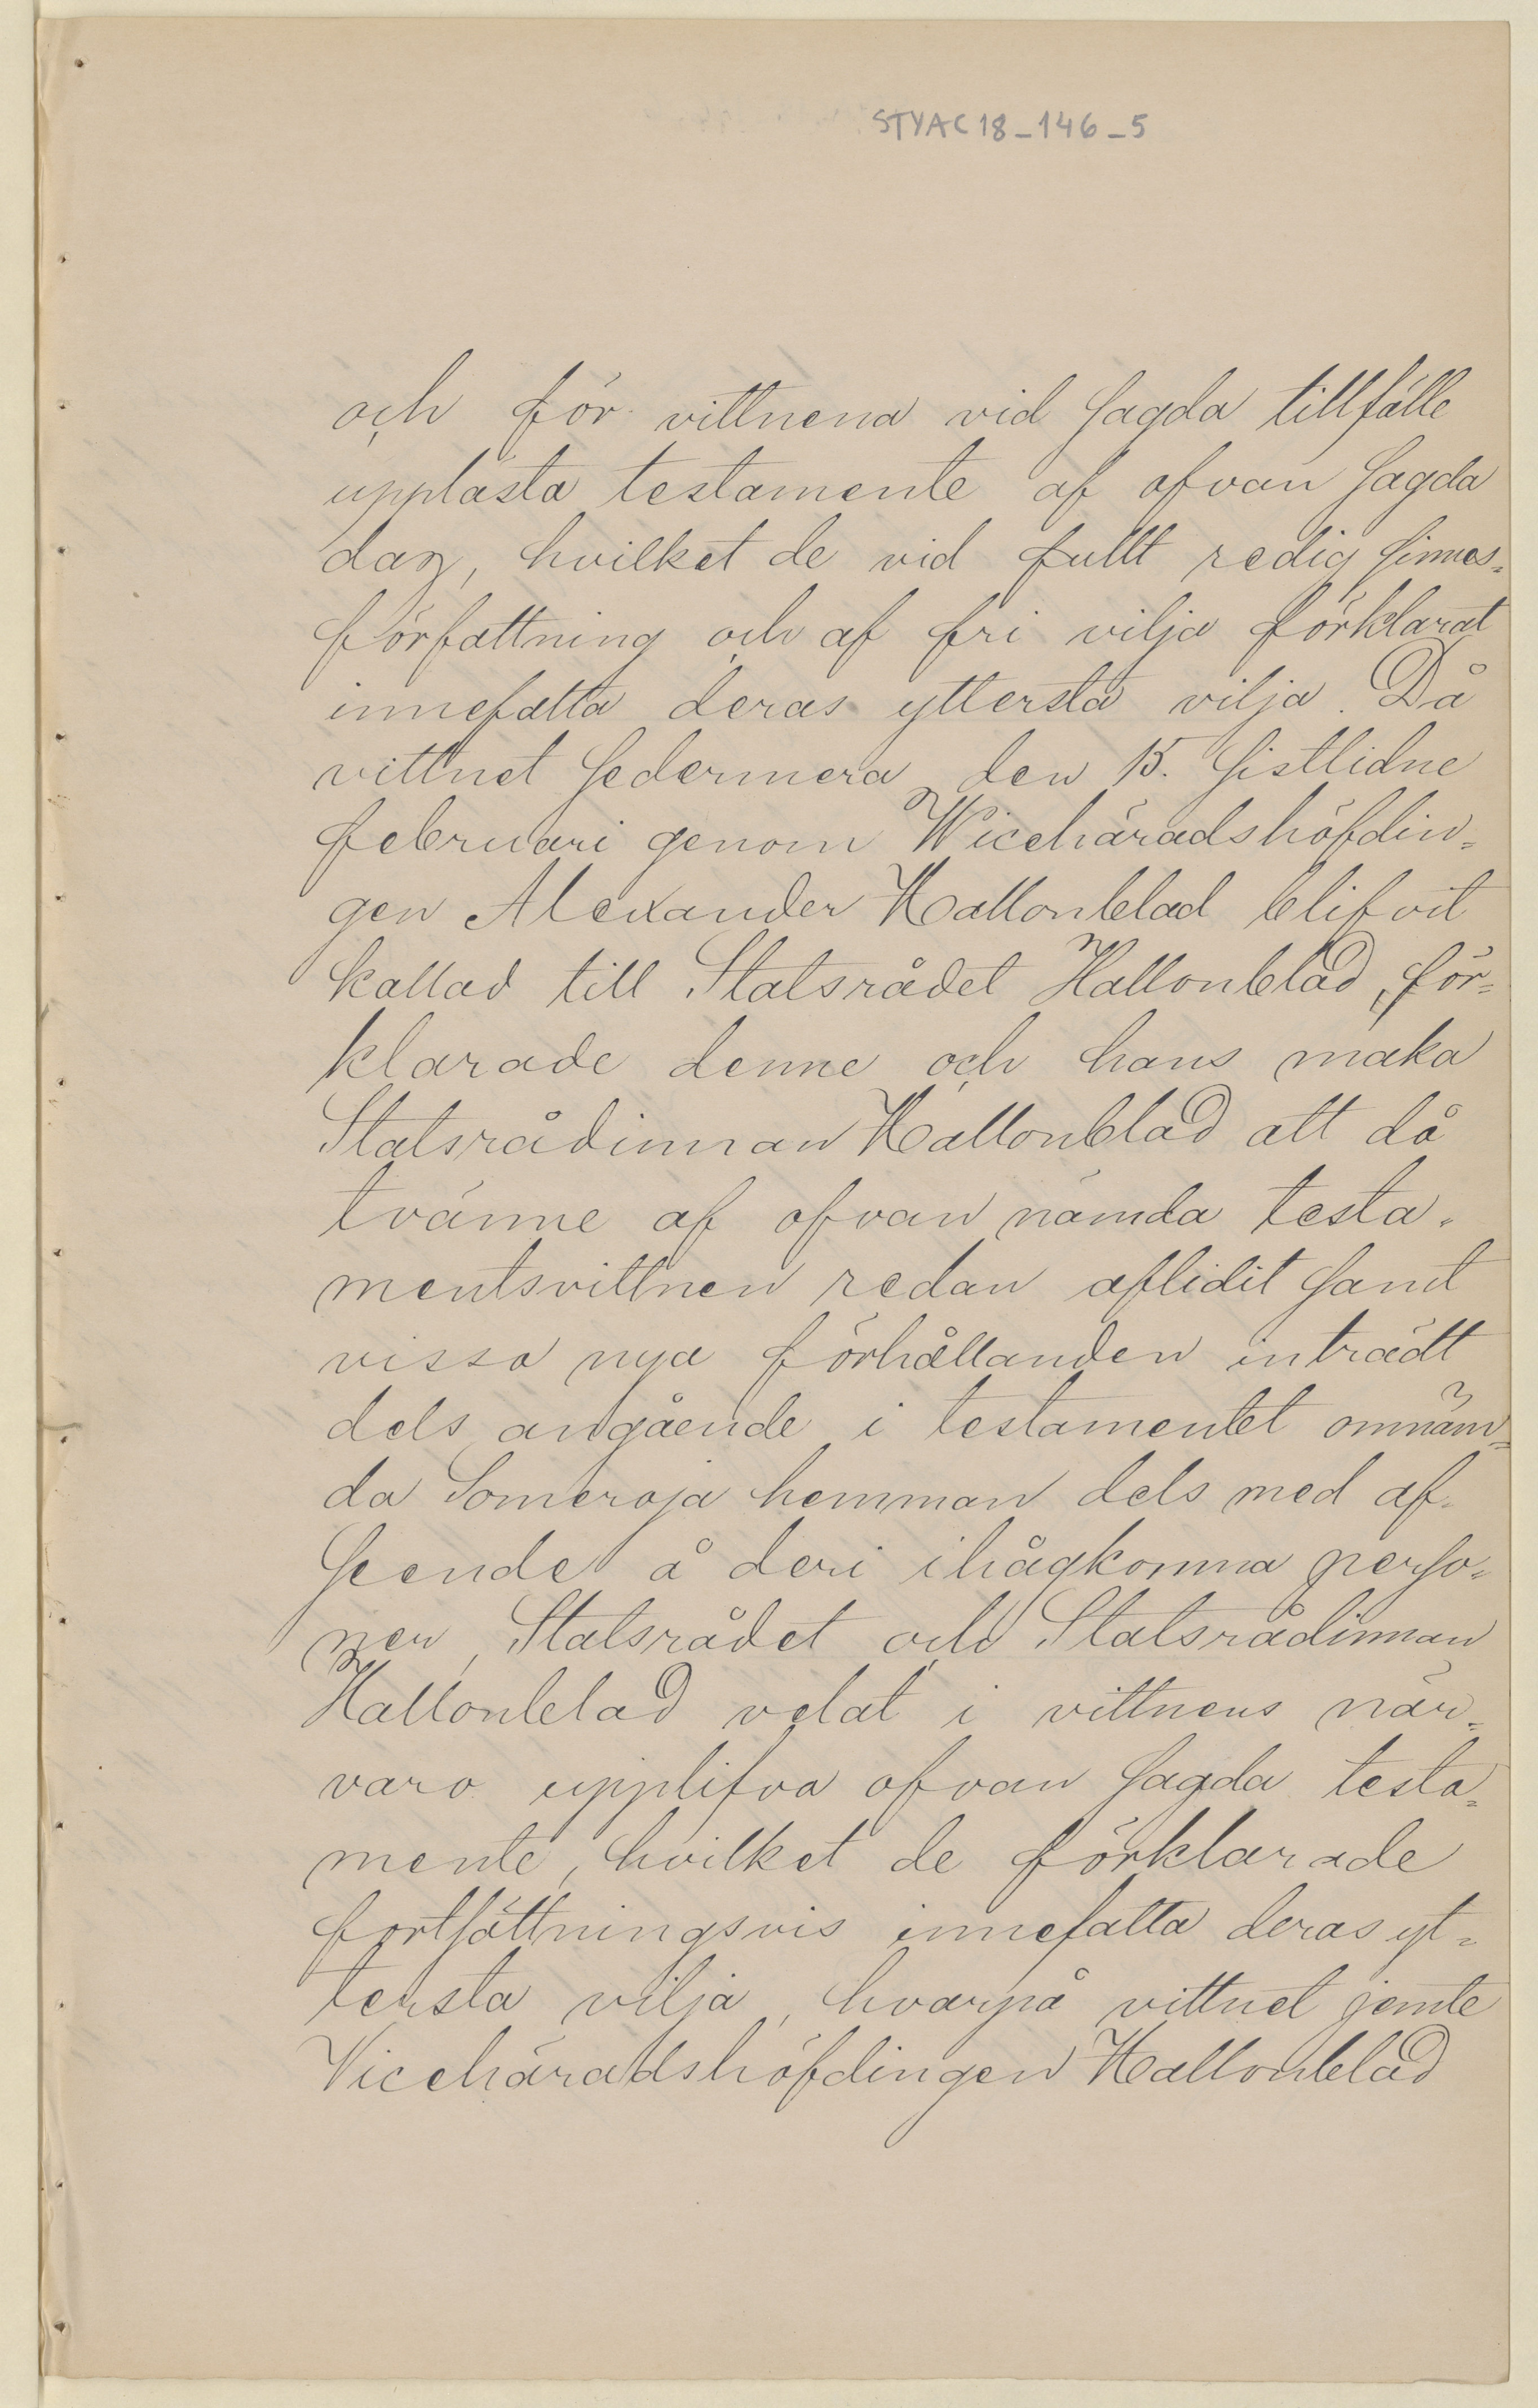 STYAC18_146_5
och för vittnena vid sagda tillfälle
upplästa testamente af ofvan sagda
dag, hvilket de vid fullt redig sinnes-
författning och af fri vilja förklarat
innefatta deras yttersta vilja. Då
vittnet sedermera den 15. sistlidne
februari genom Wicehäradshöfdin-
gen Alexander Hallonblad blifvit
kallad till Statsrådet Hallonblad, för-
klarade denne och hans maka
Statsrådinnan Hallonblad att då
tvänne af ofvan nämda testa-
mentsvittnen redan aflidit samt
vissa nya förhållanden inträdt
dels angående i testamentet omnäm-
da Someroja hemman dels med af-
seende å deri ihågkomna perso-
ner, Statsrådet och Statsrådinnan
Hallonblad velat i vittnens när-
varo upplifva ofvan sagda testa-
mente, hvilket de förklarade
fortsättningsvis innefatta deras yt-
tersta vilja, hvarpå vittnet jemte
Vicehäradshöfdingen Hallonblad